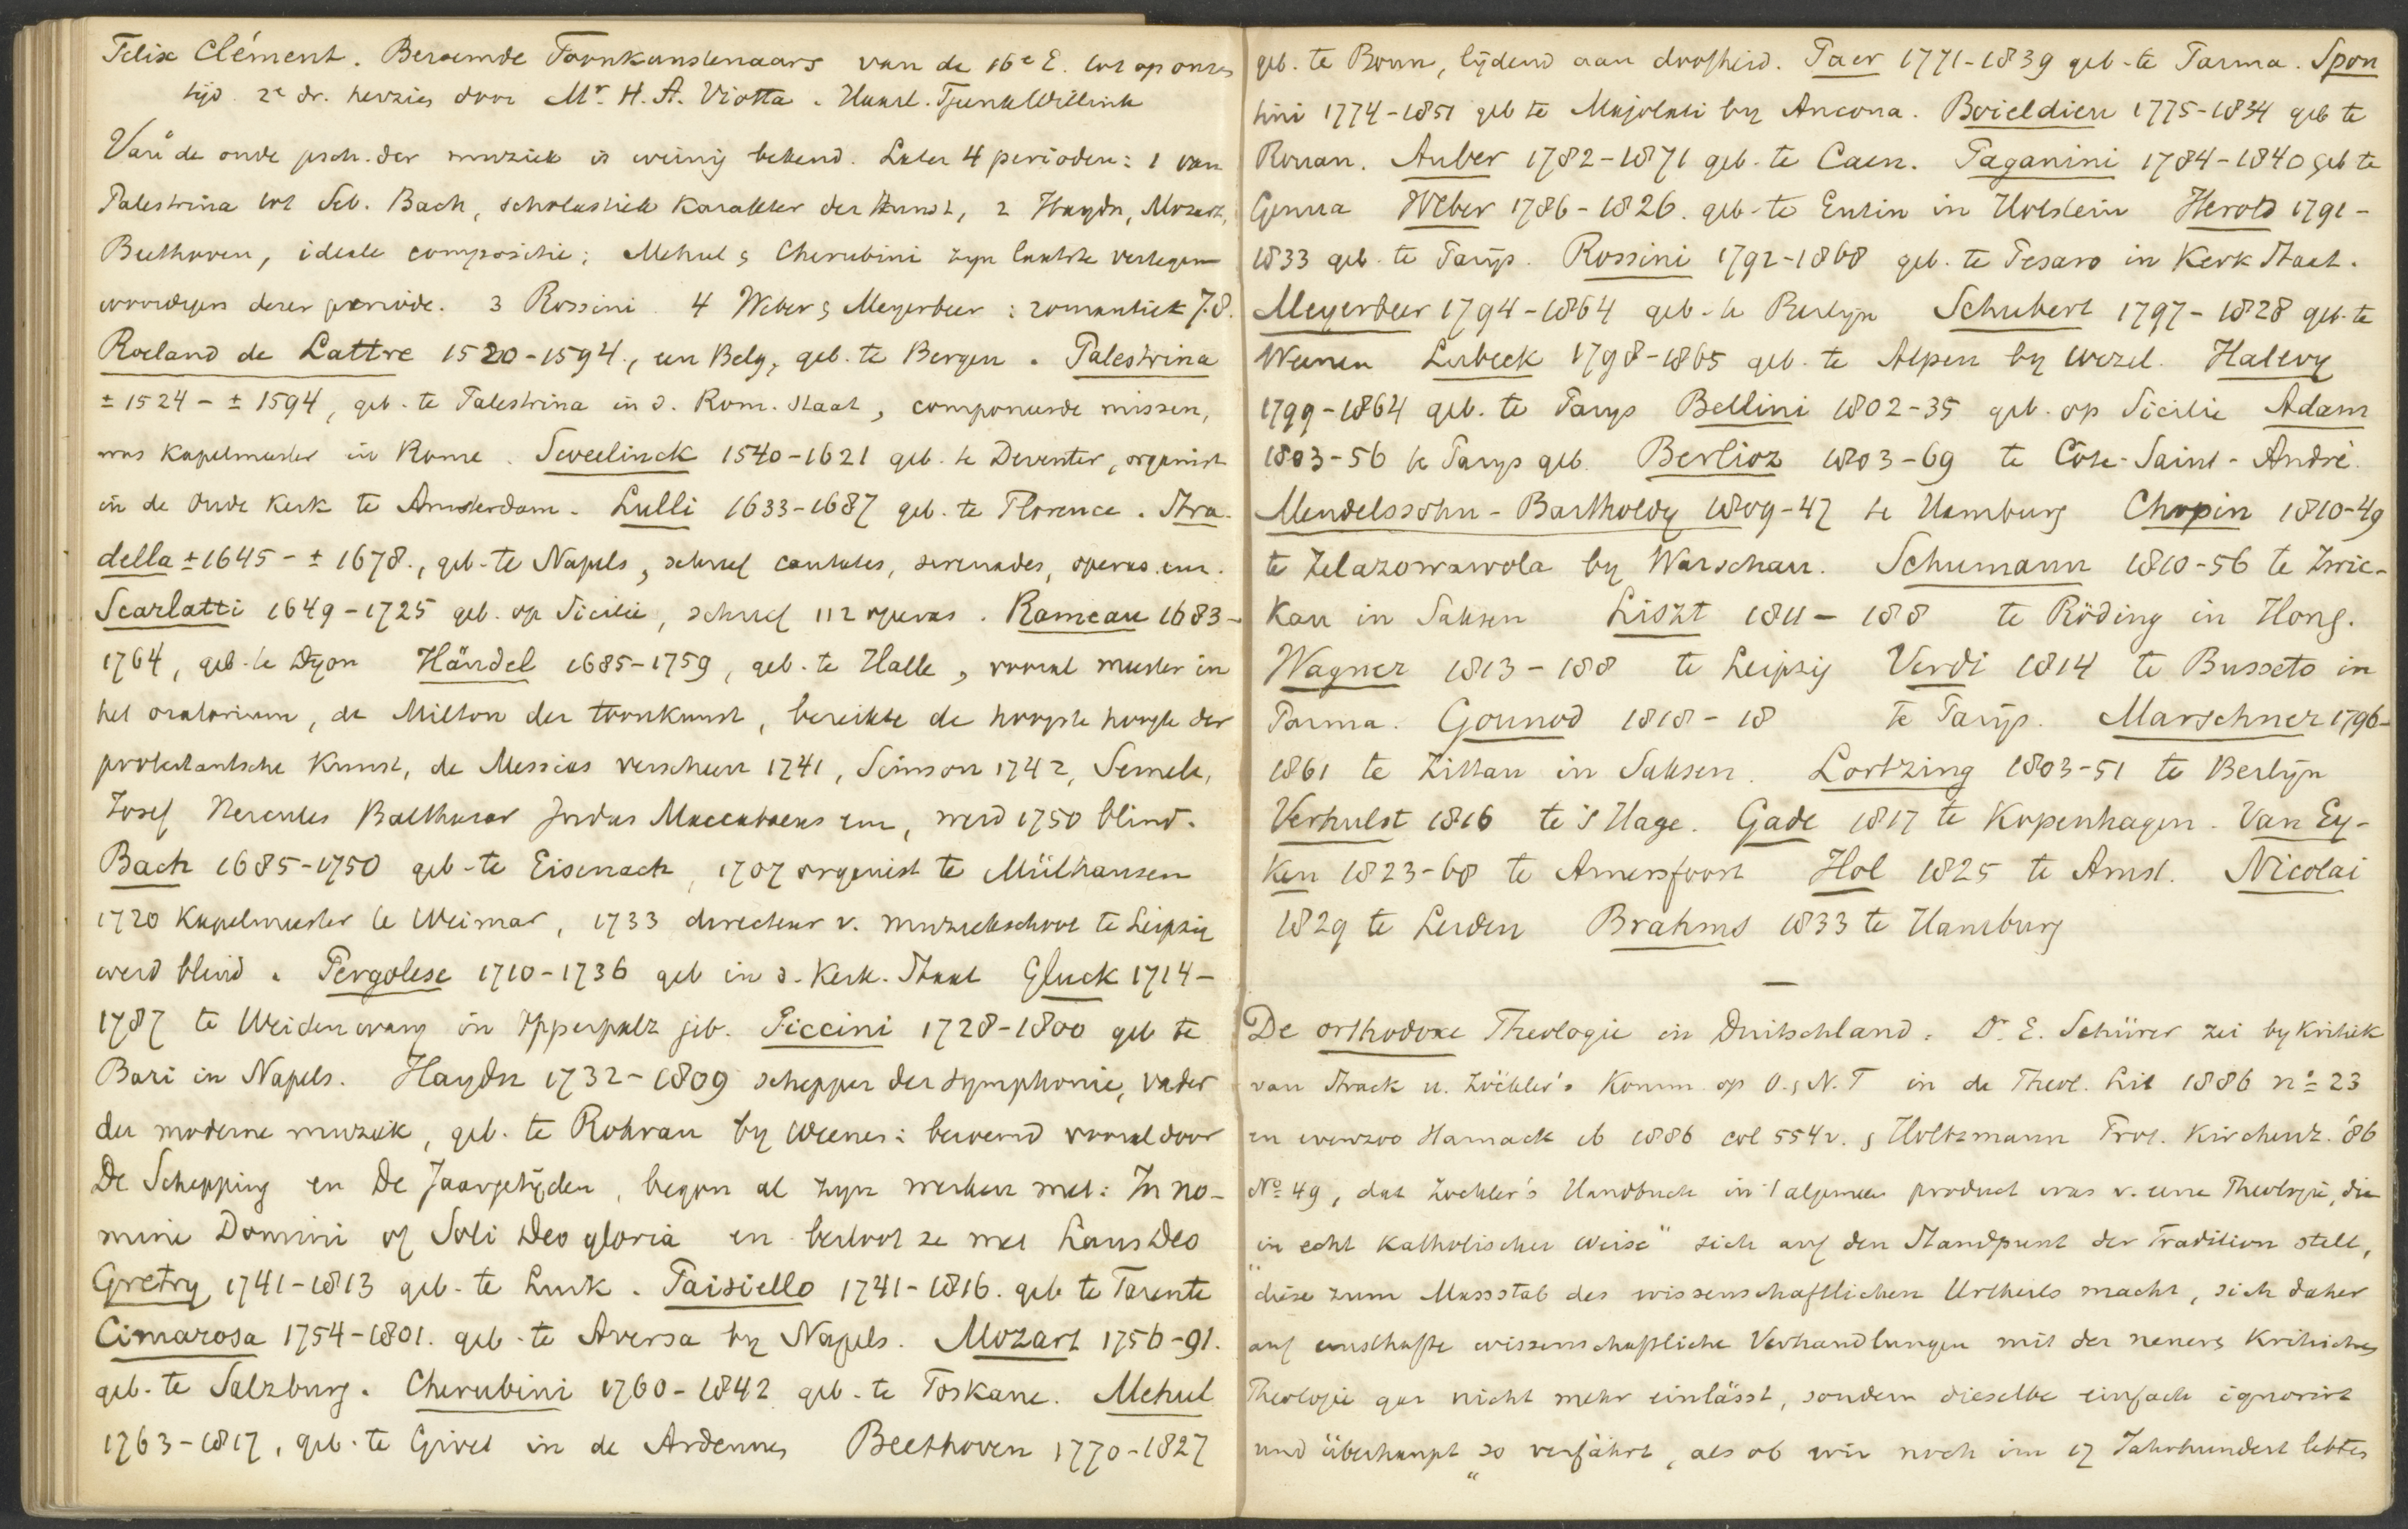 Felix Clément. Beroemde Toonkunstenaars van de 16e E. tot op onzen
tijd. 2e dr. herzien door Mr. H. A. Viotta. Haarl. Tjeenk Willink
Van de oude gesch. der muziek is weinig bekend. Later 4 perioden: 1 van
Palestrina tot Seb. Bach, scholastiek karakter der kunst, 2 Haydn, Mozart,
Beethoven, ideale compositie; Mehul & Cherubini zyn laatste vertegen
woordigers dezer periode. 3 Rossini 4 Weber & Meyerbeer: romantiek 7.8.
Roeland de Lattre 1520-1594., een Belg, geb. te Bergen. Palestrina
± 1524 - ± 1594, geb. te Palestrina in d. Rom. Staat, componeerde missen,
was kapelmeester in Rome. Sweelinck 1540-1621 geb. te Deventer, organist
in de Oude Kerk te Amsterdam. Lulli 1633-1687 geb. te Florence. Stra-
della ± 1645 - ± 1678., geb. te Napels, schreef cantates, serenades, operas enz.
Scarlatti 1649-1725 geb. op Sicilië, schreef 112 operas. Rameau 1683-
1764, geb. te Dyon Händel 1685-1759, geb. te Halle, vooral meester in
het oratorium, de Milton der toonkunst, bereikte de hoogste hoogte der
protestantsche kunst, de Messias verscheen 1741, Simson 1742, Semele,
Josef Hercules Balthasar Judas Maccabaeus enz, werd 1750 blind.
Bach 1685-1750 geb. te Eisenach, 1707 organist te Mülhausen
1720 kapelmeester te Weimar, 1733 directeur v. muziekschool te Leipzig
werd blind. Pergolese 1710-1736 geb in d. Kerk. Staat Gluck 1714-
1787 te Weidenwang in Opperpalz geb. Piccini 1728-1800 geb te
Bari in Napels. Haydn 1732-1809 schepper der symphonie, vader
der moderne muziek, geb. te Rohrau by Weenen: beroemd vooral door
De Schepping en De Jaargetijden, begon al zyn werken met: In no-
mine Domini of Soli Deo gloria en besloot ze met Laus Deo
Gretry 1741-1813 geb. te Luik. Paisiello 1741-1816. geb te Tarente
Cimarosa 1754-1801. geb. te Aversa by Napels. Mozart 1756-91.
geb. te Salzburg. Cherubini 1760-1842 geb. te Toskane. Mehul
1763-1817, geb. te Givet in de Ardennes Beethoven 1770-1827
geb. te Bonn, lijdend aan doofheid. Paer 1771-1839 geb. te Parma. Spon
tini 1774-1851 geb te Majolati by Ancona. Boieldieu 1775-1834 geb te
Rouan. Auber 1782-1871 geb. te Caen. Paganini 1784-1840 geb te
Genua Weber 1786-1826. geb. te Eutin in Holstein Herold 1791-
1833 geb. te Parijs. Rossini 1792-1868 geb. te Pesaro in Kerk Staat.
Meyerbeer 1794-1864 geb. te Berlyn Schubert 1797-1828 geb. te
Weenen Lubeck 1798-1865 geb. te Alpen by Wezel. Halevy
1799-1864 geb. te Parys Bellini 1802-35 geb. op Sicilie Adam
1803-56 te Parys geb. Berlioz 1803-69 te Côte-Saint-André.
Mendelssohn-Bartholdy 1809-47 te Hamburg Chopin 1810-49
te Zelazowawola by Warschau. Schumann 1810-56 te Zwic-
kau in Saksen Liszt 1811- 188 te Röding in Hong.
Wagner 1813-188 te Leipzig Verdi 1814 te Busseto in
Parma. Gounod 1818-18 te Parijs. Marschner 1796-
1861 te Zittau in Saksen. Lortzing 1803-51 te Berlijn
Verhulst 1816 te 's Hage. Gade 1817 te Kopenhagen. Van Ey-
ken 1823-68 te Amersfoort Hol 1825 te Amst. Nicolai
1829 te Leiden Brahms 1833 te Hamburg
—
De orthodoxe Theologie in Duitschland. Dr. E. Schürer zei by kritiek
van Strack u. Zöckler's Komm. op O. & N. T in de Theol. Lit 1886 no 23
en evenzoo Harnack ib 1886 col 554 v. & Holtzmann Prot. Kirchenz. '86
No 49, dat Zockler's Handbuch in 't algemeen product was v. eene Theologie, die
"in echt katholischer Weise" sich auf den Standpunt der Tradition stelt,
"diese zum Massstab des wissenschaftlichen Urtheils macht, sich daher
auf ernsthafte wissenschaftliche Verhandlungen mit der neuern kritischen
Theologie gar nicht mehr einlässt, sondern dieselbe einfach ignorirt
und überhaupt "so verfährt, als ob wir noch im 17 Jahrhundert lebten